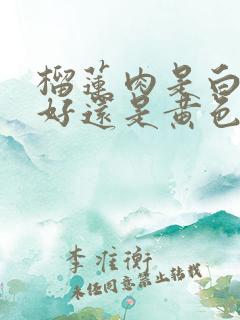 榴莲肉是白
好還是黄色
李准衡
未经同意禁止转载